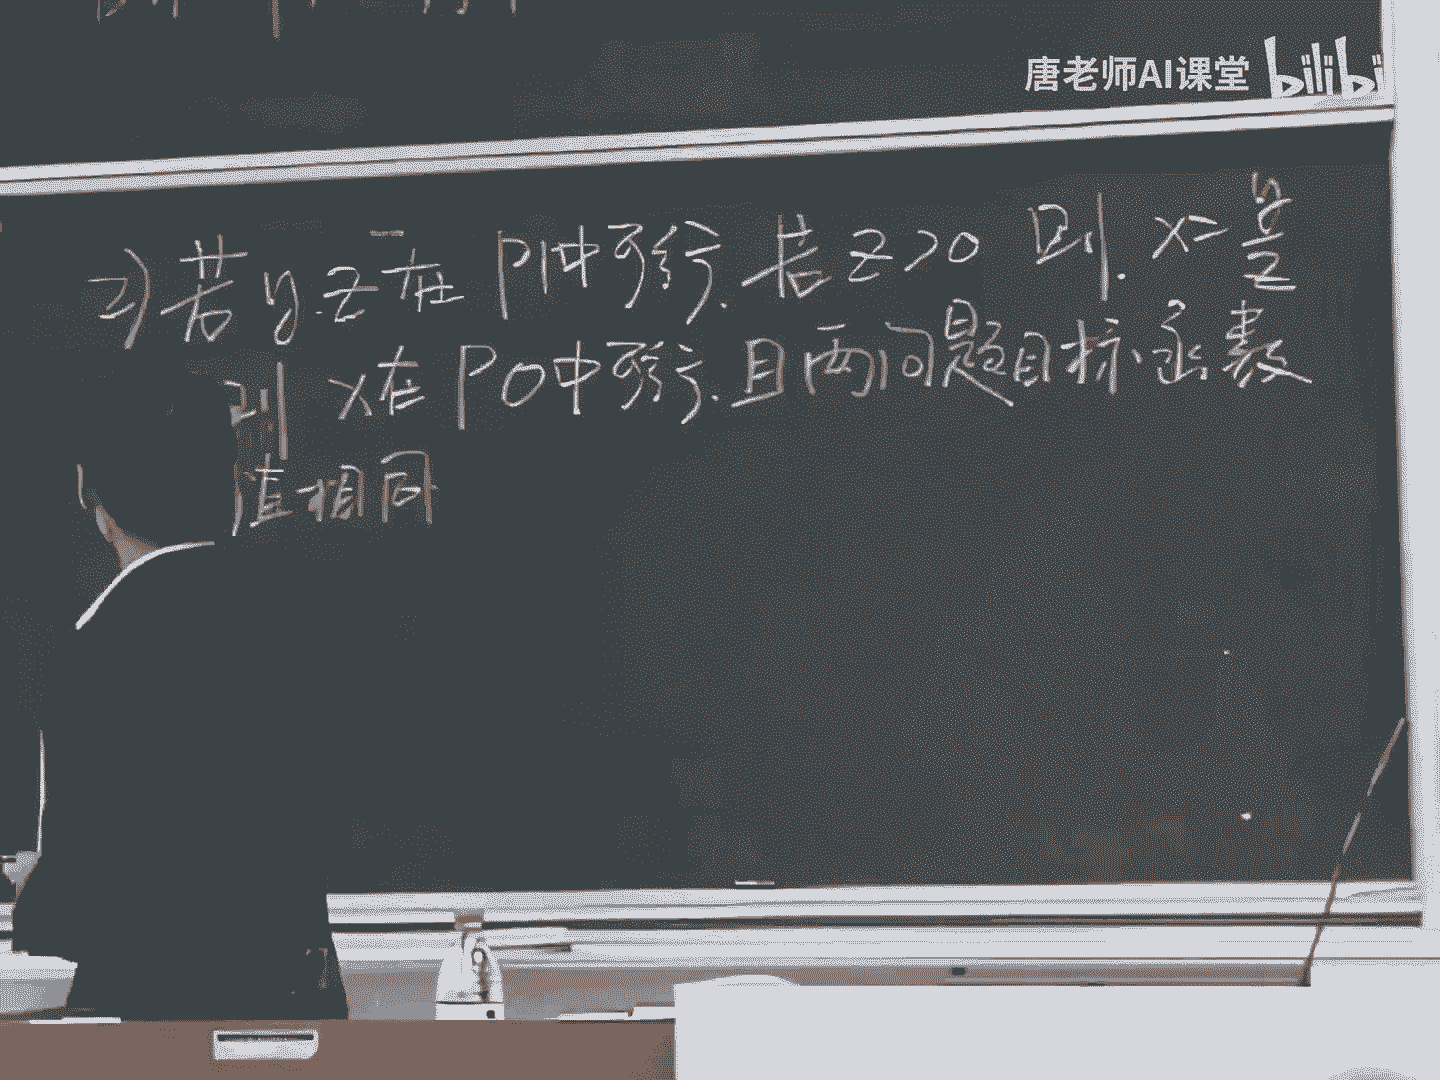 唐老师AI课堂 bilibi
2)若y.z在P1中可行.若z>0 则. x=y/z
则 x在P0中可行.且两问题目标函数
值相同